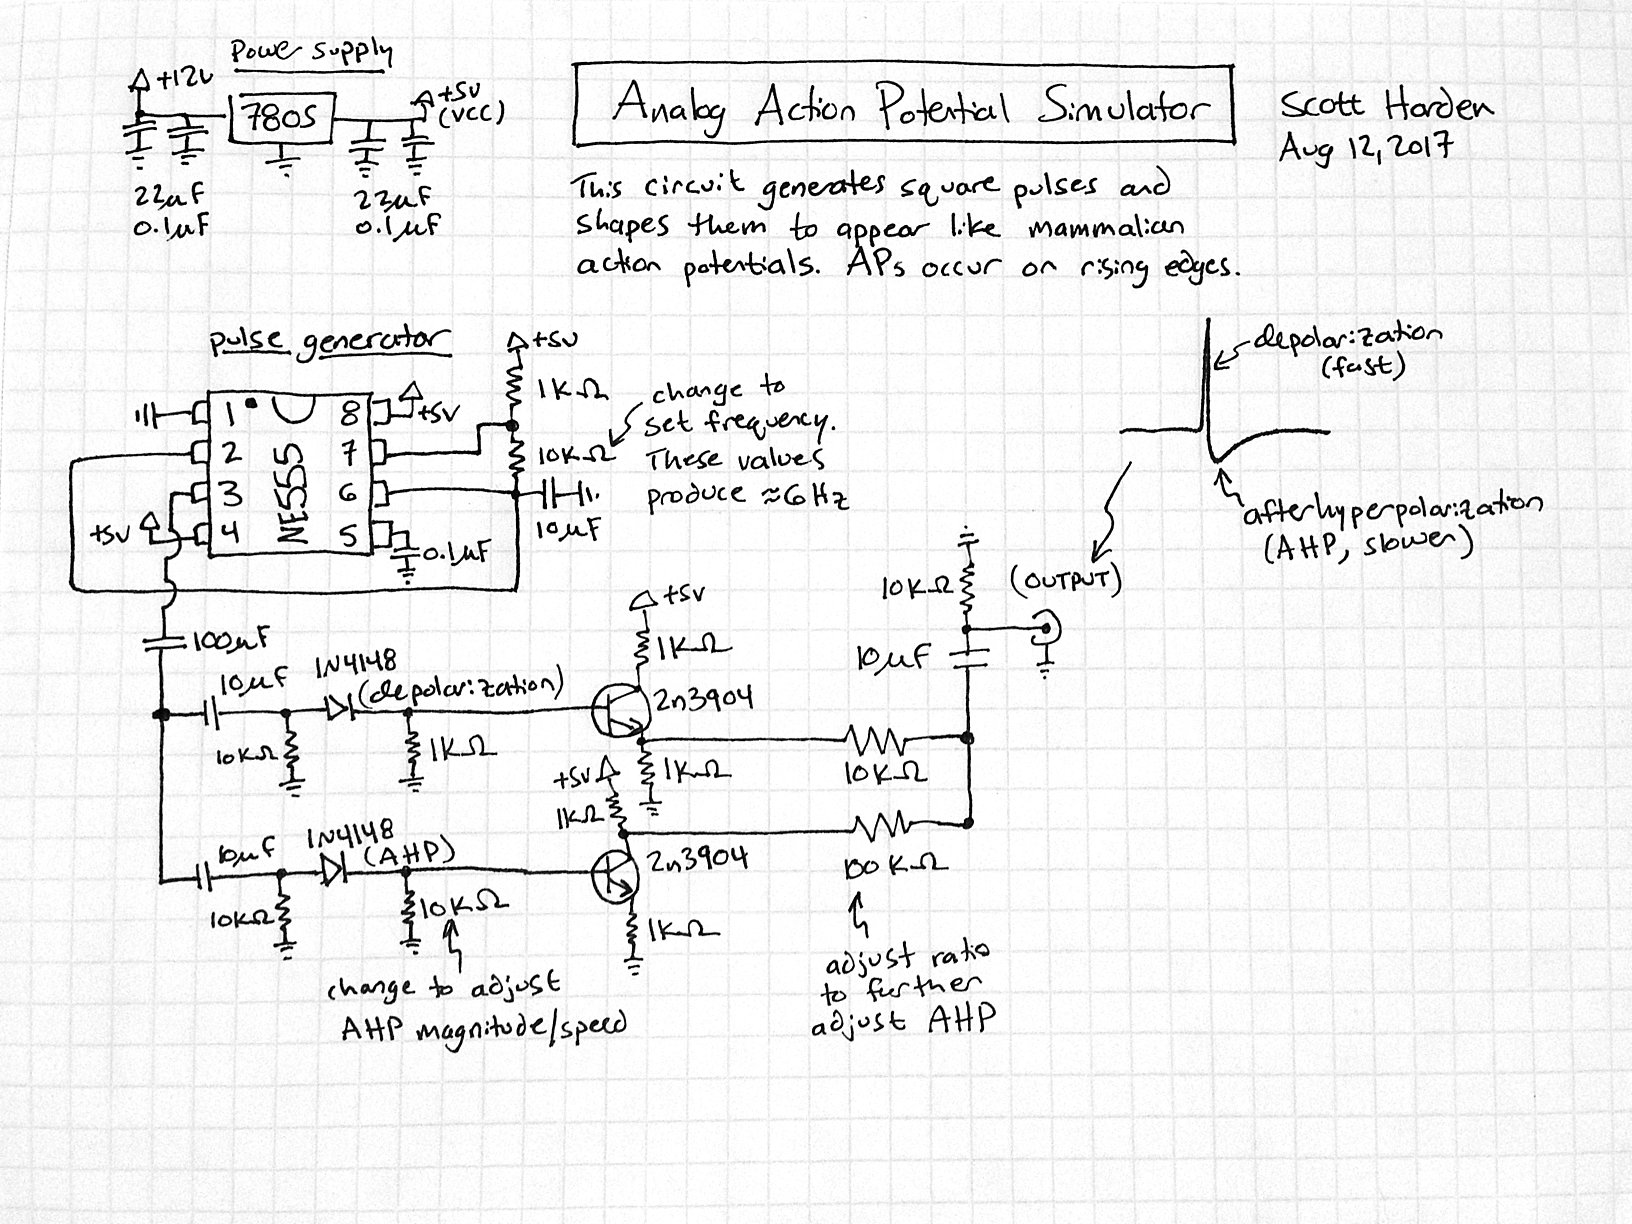 Power supply
+12V
7805
+5V
(VCC)
22uF
0.1uF
22uF
0.1uF
Analog Action Potential Simulator
Scott Harden
Aug 12, 2017
This circuit generates square pulses and
shapes them to appear like mammalian
action potentials. APs occur on rising edges.
pulse generator
+5V
1KΩ
10KΩ
change to
set frequency.
These values
produce ≈6Hz
1
2
3
4
NE555
8
7
6
5
+5V
+5V
10uF
0.1uF
depolarization
(fast)
afterhyperpolarization
(AHP, slower)
(OUTPUT)
10KΩ
10uF
100uF
10uF
1N4148
(depolarization)
10KΩ
1KΩ
+5V
1KΩ
2n3904
1KΩ
10KΩ
+5V
1KΩ
10uF
1N4148
(AHP)
10KΩ
10KΩ
2n3904
1KΩ
100KΩ
change to adjust
AHP magnitude/speed
adjust ratio
to further
adjust AHP